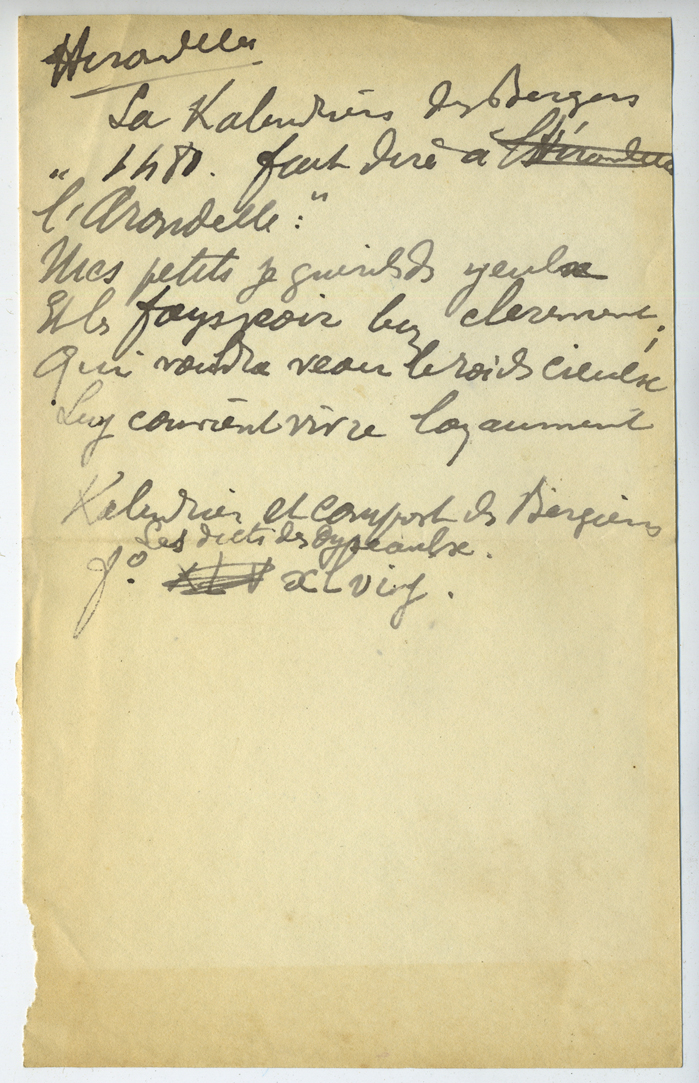 Hirondelles
La Kalendriers des Bergers
„ 1480. fait dire à l'Hirondelle
l'Arondelle : "
Mes petits je gueris des yeulx
Et les fays veoir luy clerement,
Qui vouldra veoir le roi des cieulx
Luy convient vivre loyaument
Kalendrier et compost des Bergiers
Les dicts des oyseaulx.
fo. XLV xlviij.